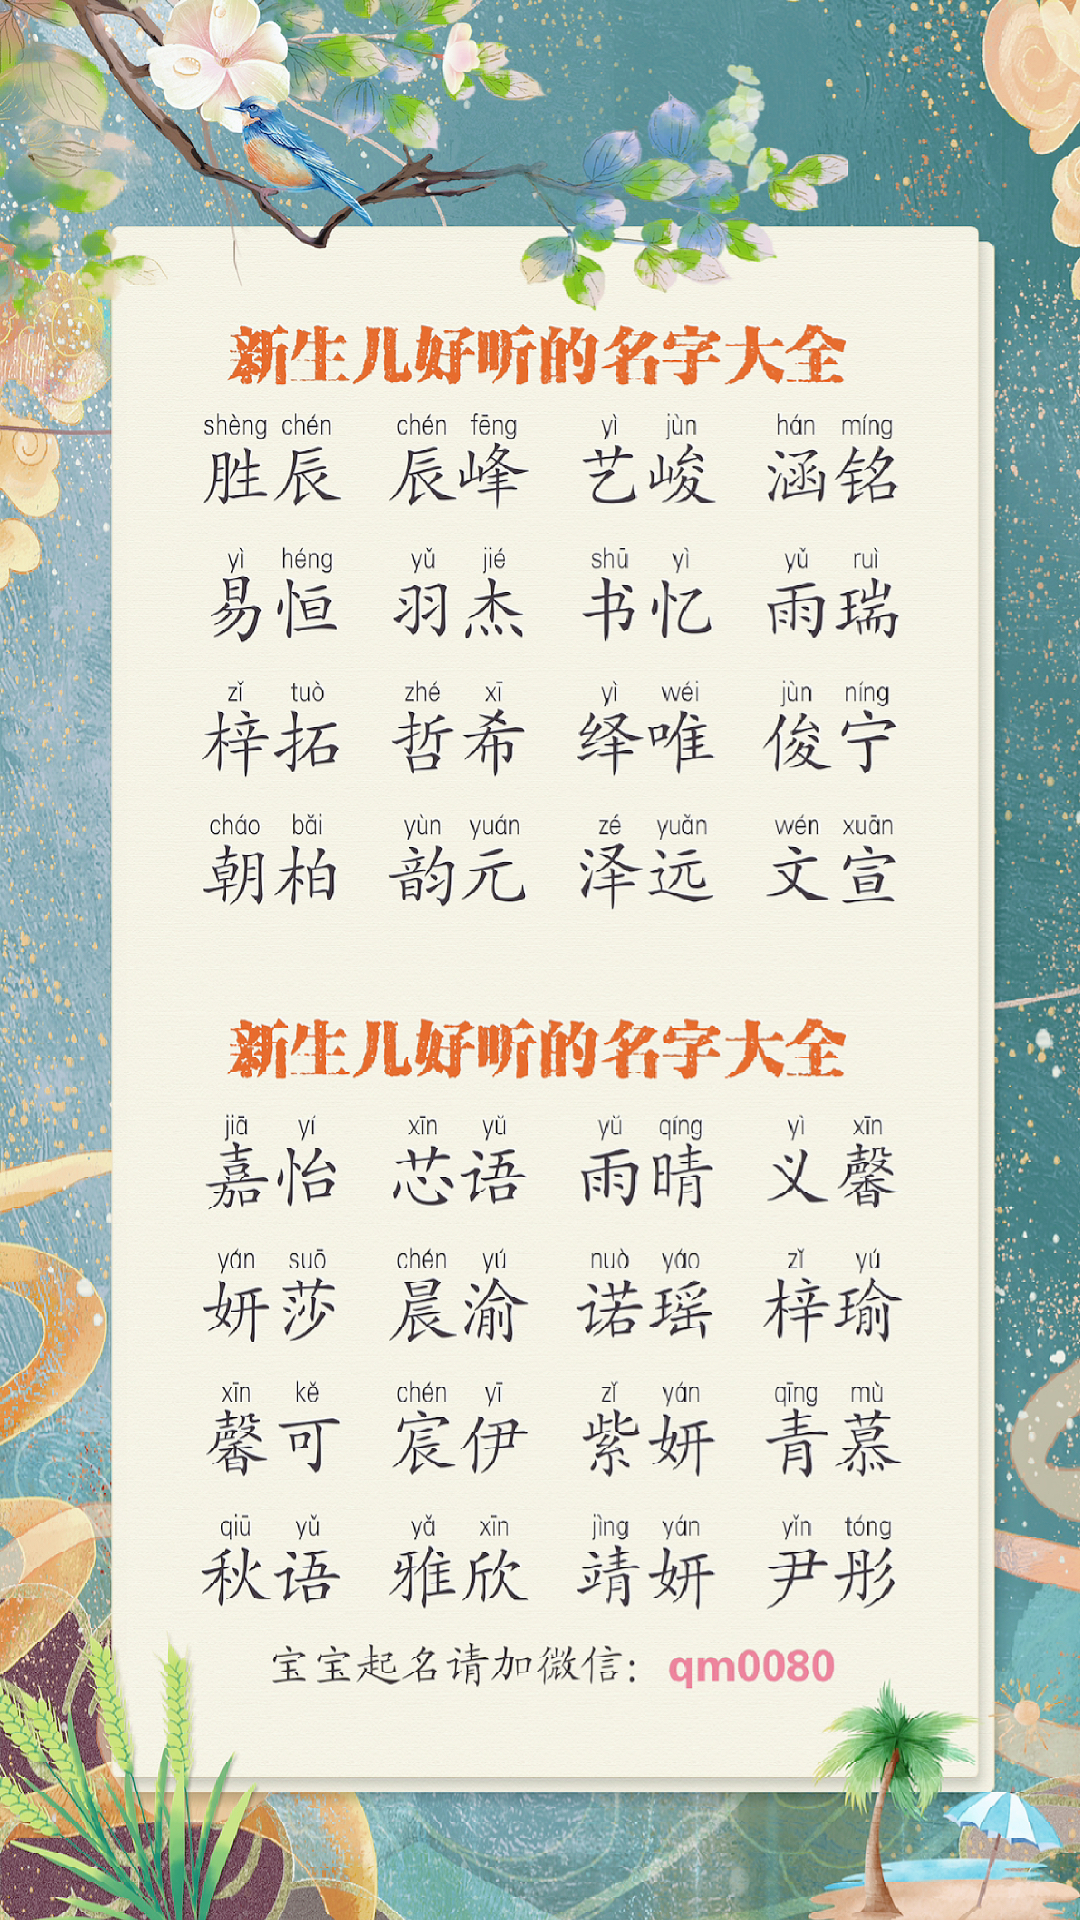 新生儿好听的名字大全
shèng chén chén fēng yì jùn hán míng
胜辰 辰峰 艺峻 涵铭
yì héng yǔ jié shū yì yǔ ruì
易恒 羽杰 书忆 雨瑞
zǐ tuò zhé xī yì wéi jùn níng
梓拓 哲希 绎唯 俊宁
cháo bǎi yùn yuán zé yuǎn wén xuān
朝柏 韵元 泽远 文宣
新生儿好听的名字大全
jiā yí xīn yǔ yǔ qíng yì xīn
嘉怡 芯语 雨晴 义馨
yán suō chén yú nuò yáo zǐ yú
妍莎 晨渝 诺瑶 梓瑜
xīn kě chén yī zǐ yán qīng mù
馨可 宸伊 紫妍 青慕
qiū yǔ yǎ xīn jìng yán yǐn tóng
秋语 雅欣 靖妍 尹彤
宝宝起名请加微信：qm0080